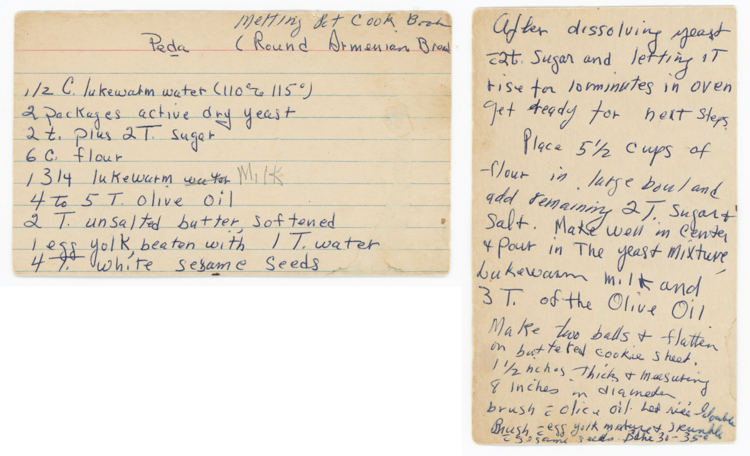 Melting Pot Cook Book
Peda (Round Armenian Bread
1/2 C. lukewarm water (110° to 115°)
2 packages active dry yeast
2 t. plus 2 T. sugar
6 C. flour
1 3/4 lukewarm water Milk
4 to 5 T. Olive Oil
2 T. unsalted butter, softened
1 egg yolk, beaten with 1 T. water
4 T. white sesame seeds
After dissolving yeast
= 2t. Sugar and letting it
rise for 10 minutes in oven
get ready for next steps.
Place 5 1/2 cups of
flour in large bowl and
add remaining 2 T. Sugar &
Salt. Make well in center
& pour in The yeast mixture,
Lukewarm milk and
3 T. of the Olive Oil
Make two balls & flatten
on buttered cookie sheet.
1 1/2 inches Thick & measuring
8 inches in diameter
brush = olive oil. Let rise double
Brush = egg yolk mixture & sprinkle
= sesame seeds Bake 30-35